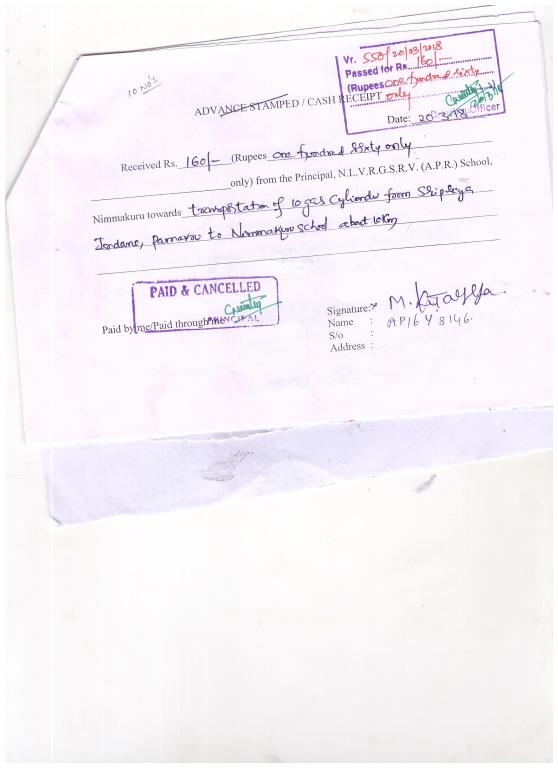 10 No's
Vr. 550/20/03/2018
Passed for Rs. 160/-
(Rupees one hundred & sixty
only
Officer
ADVANCE STAMPED / CASH RECEIPT
Date: 20-3-18
Received Rs. 160/- (Rupees one hundred & sixty only
only) from the Principal, N.L.V.R.G.S.R.V. (A.P.R.) School,
Nimmakuru towards transportation of 10 gas Cylinder from
to Nimmakuru school about 10Km
PAID & CANCELLED
PRINCIPAL
Paid by me/Paid through the
Signature: M.
Name : AP16 Y 8146.
S/o :
Address :